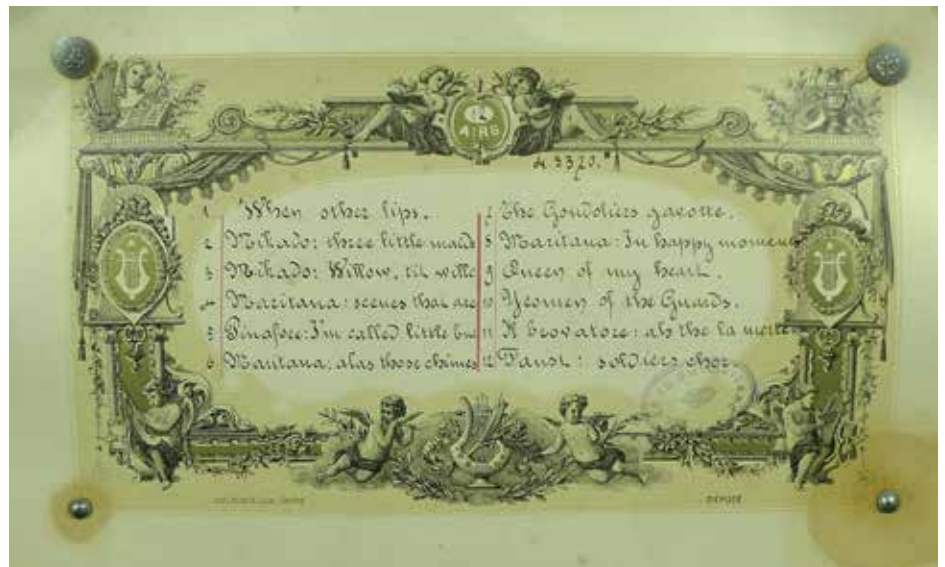 AIRS
№ 3320.
1 When other lips.
2 Mikado: three little maids
3 Mikado: Willow, tit willo
4 Maritana: scenes that are
5 Pinafore: I'm called little bu
6 Maritana: alas those chimes
7 The Gondoliers gavotte.
8 Maritana: In happy moment
9 Queen of my heart.
10 Yeomen of the Guards.
11 Il trovatore: ah the la morte
12 Faust: soldiers chor.
DÉPOSÉ